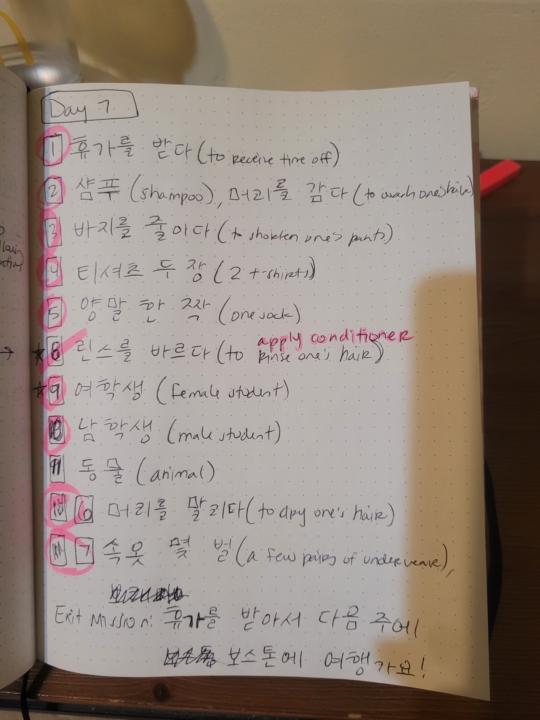 Day 7
1 휴가를 받다 (to receive time off)
2 샴푸 (shampoo), 머리를 감다 (to wash one's hair)
3 바지를 줄이다 (to shorten one's pants)
4 티셔츠 두 장 (2 t-shirts)
5 양말 한 짝 (one sock)
apply conditioner
→ ★8 린스를 바르다 (to rinse one's hair)
★9 여학생 (female student)
10 남학생 (male student)
11 동물 (animal)
6 머리를 말리다 (to dry one's hair)
7 속옷 몇 벌 (a few pairs of underwear),
Exit Mission: 휴가를 받아서 다음 주에
보스톤에 여행 가요!